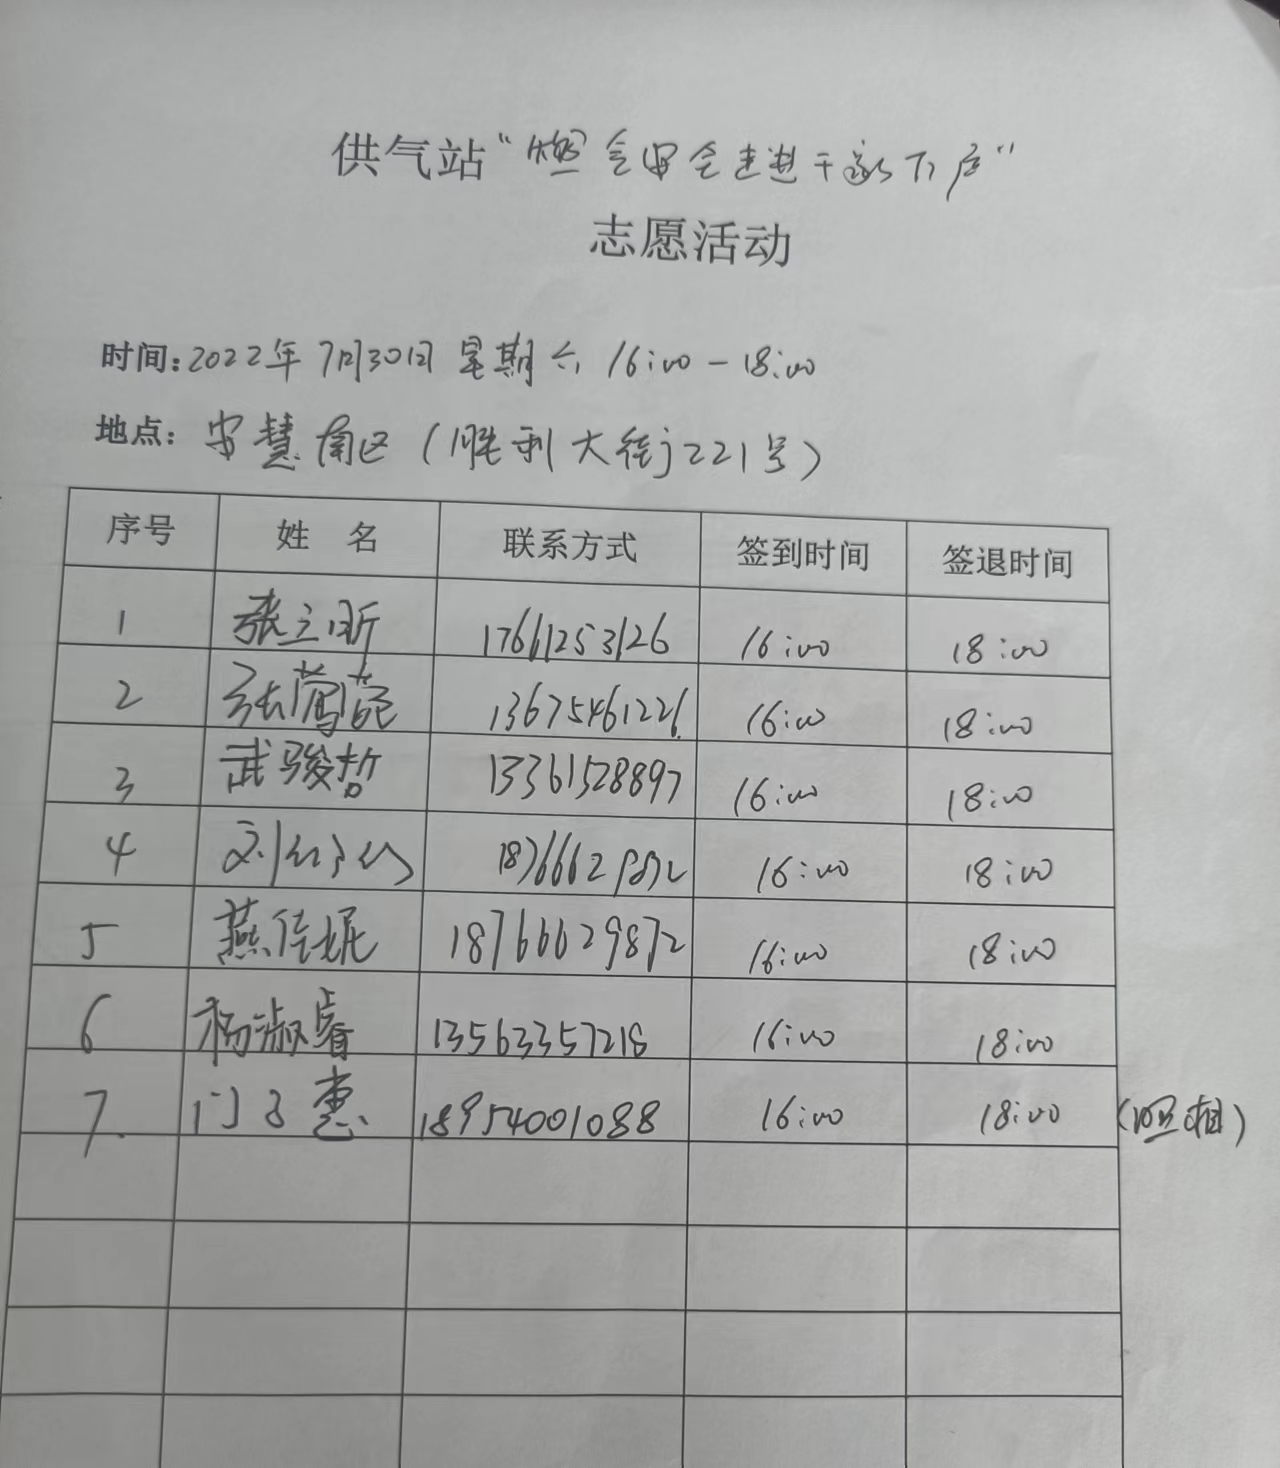 供气站“燃气安全走进千家万户”
志愿活动
时间：2022年7月30日 星期六 16:00-18:00
地点：安慧南区（胜利大街221号）
序号 姓 名 联系方式 签到时间 签退时间
1 张立昕 17661253126 16:00 18:00
2 张莺莀 13675461226 16:00 18:00
3 武骏哲 13361528897 16:00 18:00
4 16:00 18:00
5 燕佳妮 18766629872 16:00 18:00
6 杨淑睿 13563357218 16:00 18:00
7. 门子惠 18954001088 16:00 18:00 （照相）